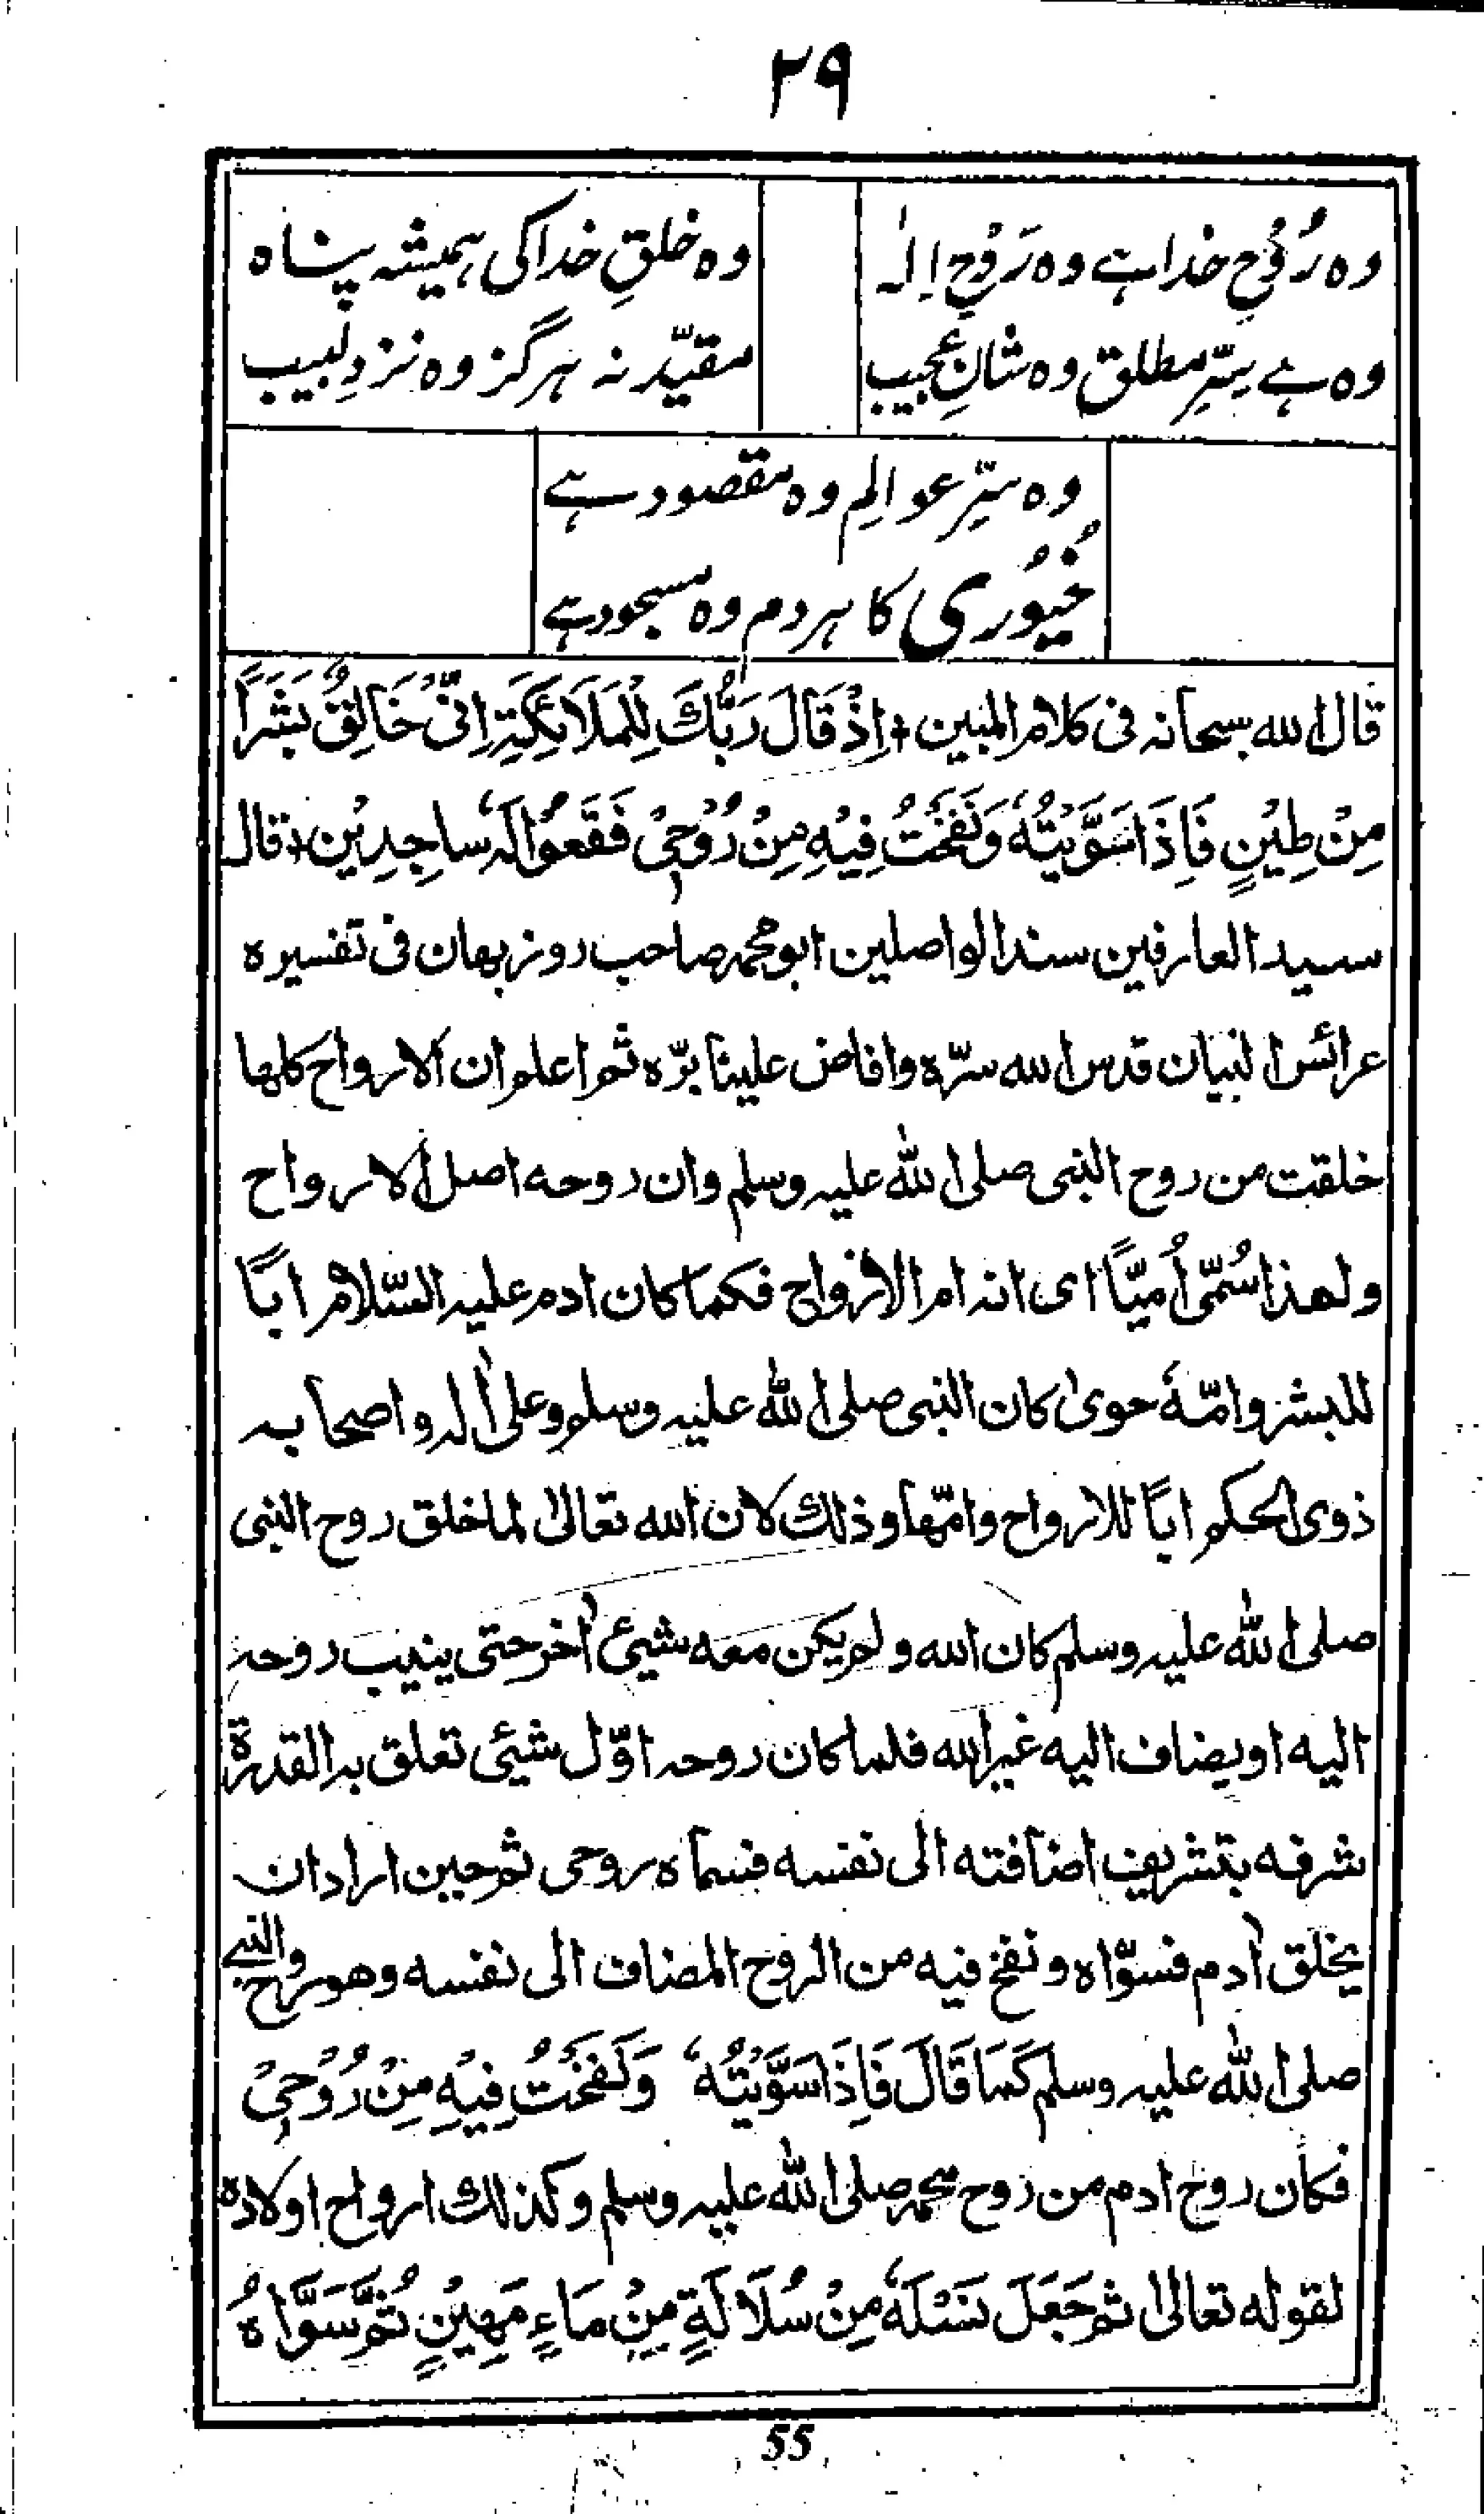 ۲۹
وہ رُوحِ خدا ہے وہ رَوْحِ اِلٰہ وہ خلقِ خدا کی ہمیشہ پناہ
وہ ہے سِرِّ مطلق وہ شانِ عجیب مقیّد نہ ہرگز وہ نزدِ لبیب
وہ سِرِّ عوالِم وہ مقصود ہے
غُیُوری کا ہر دم وہ مسجود ہے
قال اللہ سبحانہ فی کلام المبین ، اِذْ قَالَ رَبُّكَ لِلْمَلَائِكَةِ اِنِّیْ خَالِقٌ بَشَرًا
مِنْ طِیْنٍ فَاِذَا سَوَّیْتُهٗ وَنَفَخْتُ فِیْهِ مِنْ رُوْحِیْ فَقَعُوْا لَهٗ سَاجِدِیْن ، قال
سید العارفین سند الواصلین ابو محمد صاحب روزبهان فی تفسیره
عرائس البیان قدس اللہ سرّہ وافاض علینا برّہ ثم اعلم ان الارواح کلها
خلقت من روح النبی صلی اللہ علیہ وسلم وان روحه اصل الارواح
ولهذا سُمّی اُمیًّا ای انه ام الارواح فکما کان ادم علیہ السّلام ابًا
للبشر وامّهٗ حوی کان النبی صلی اللہ علیہ وسلم وعلیٰ اٰلہ واصحابہ
ذوی الحکم ابًا للارواح وامّها وذلك لان الله تعالیٰ لما خلق روح النبی
صلی اللہ علیہ وسلم کان الله ولم یکن معه شیئ اٰخر حتی ینیب روحہ
الیه او یضاف الیه غیر الله فلما کان روحہ اوّل شیئ تعلق به القدرة
شرفه بتشریف اضافته الی نفسه فسماه روحی ثم حین اراد ان
یخلق اٰدم فسوّاه ونفخ فیه من الروح المضاف الی نفسه وهو روح النبی
صلی اللہ علیہ وسلم كَمَا قَالَ فَاِذَا سَوَّیْتُهٗ وَنَفَخْتُ فِیْهِ مِنْ رُوْحِیْ
فکان روح ادم من روح محمد صلی اللہ علیہ وسلم وکذلك ارواح اولاده
لقوله تعالیٰ ثم جَعَلَ نَسْلَهٗ مِنْ سُلَالَةٍ مِنْ مَاءٍ مَهِیْنٍ ثُمَّ سَوَّاهُ
55